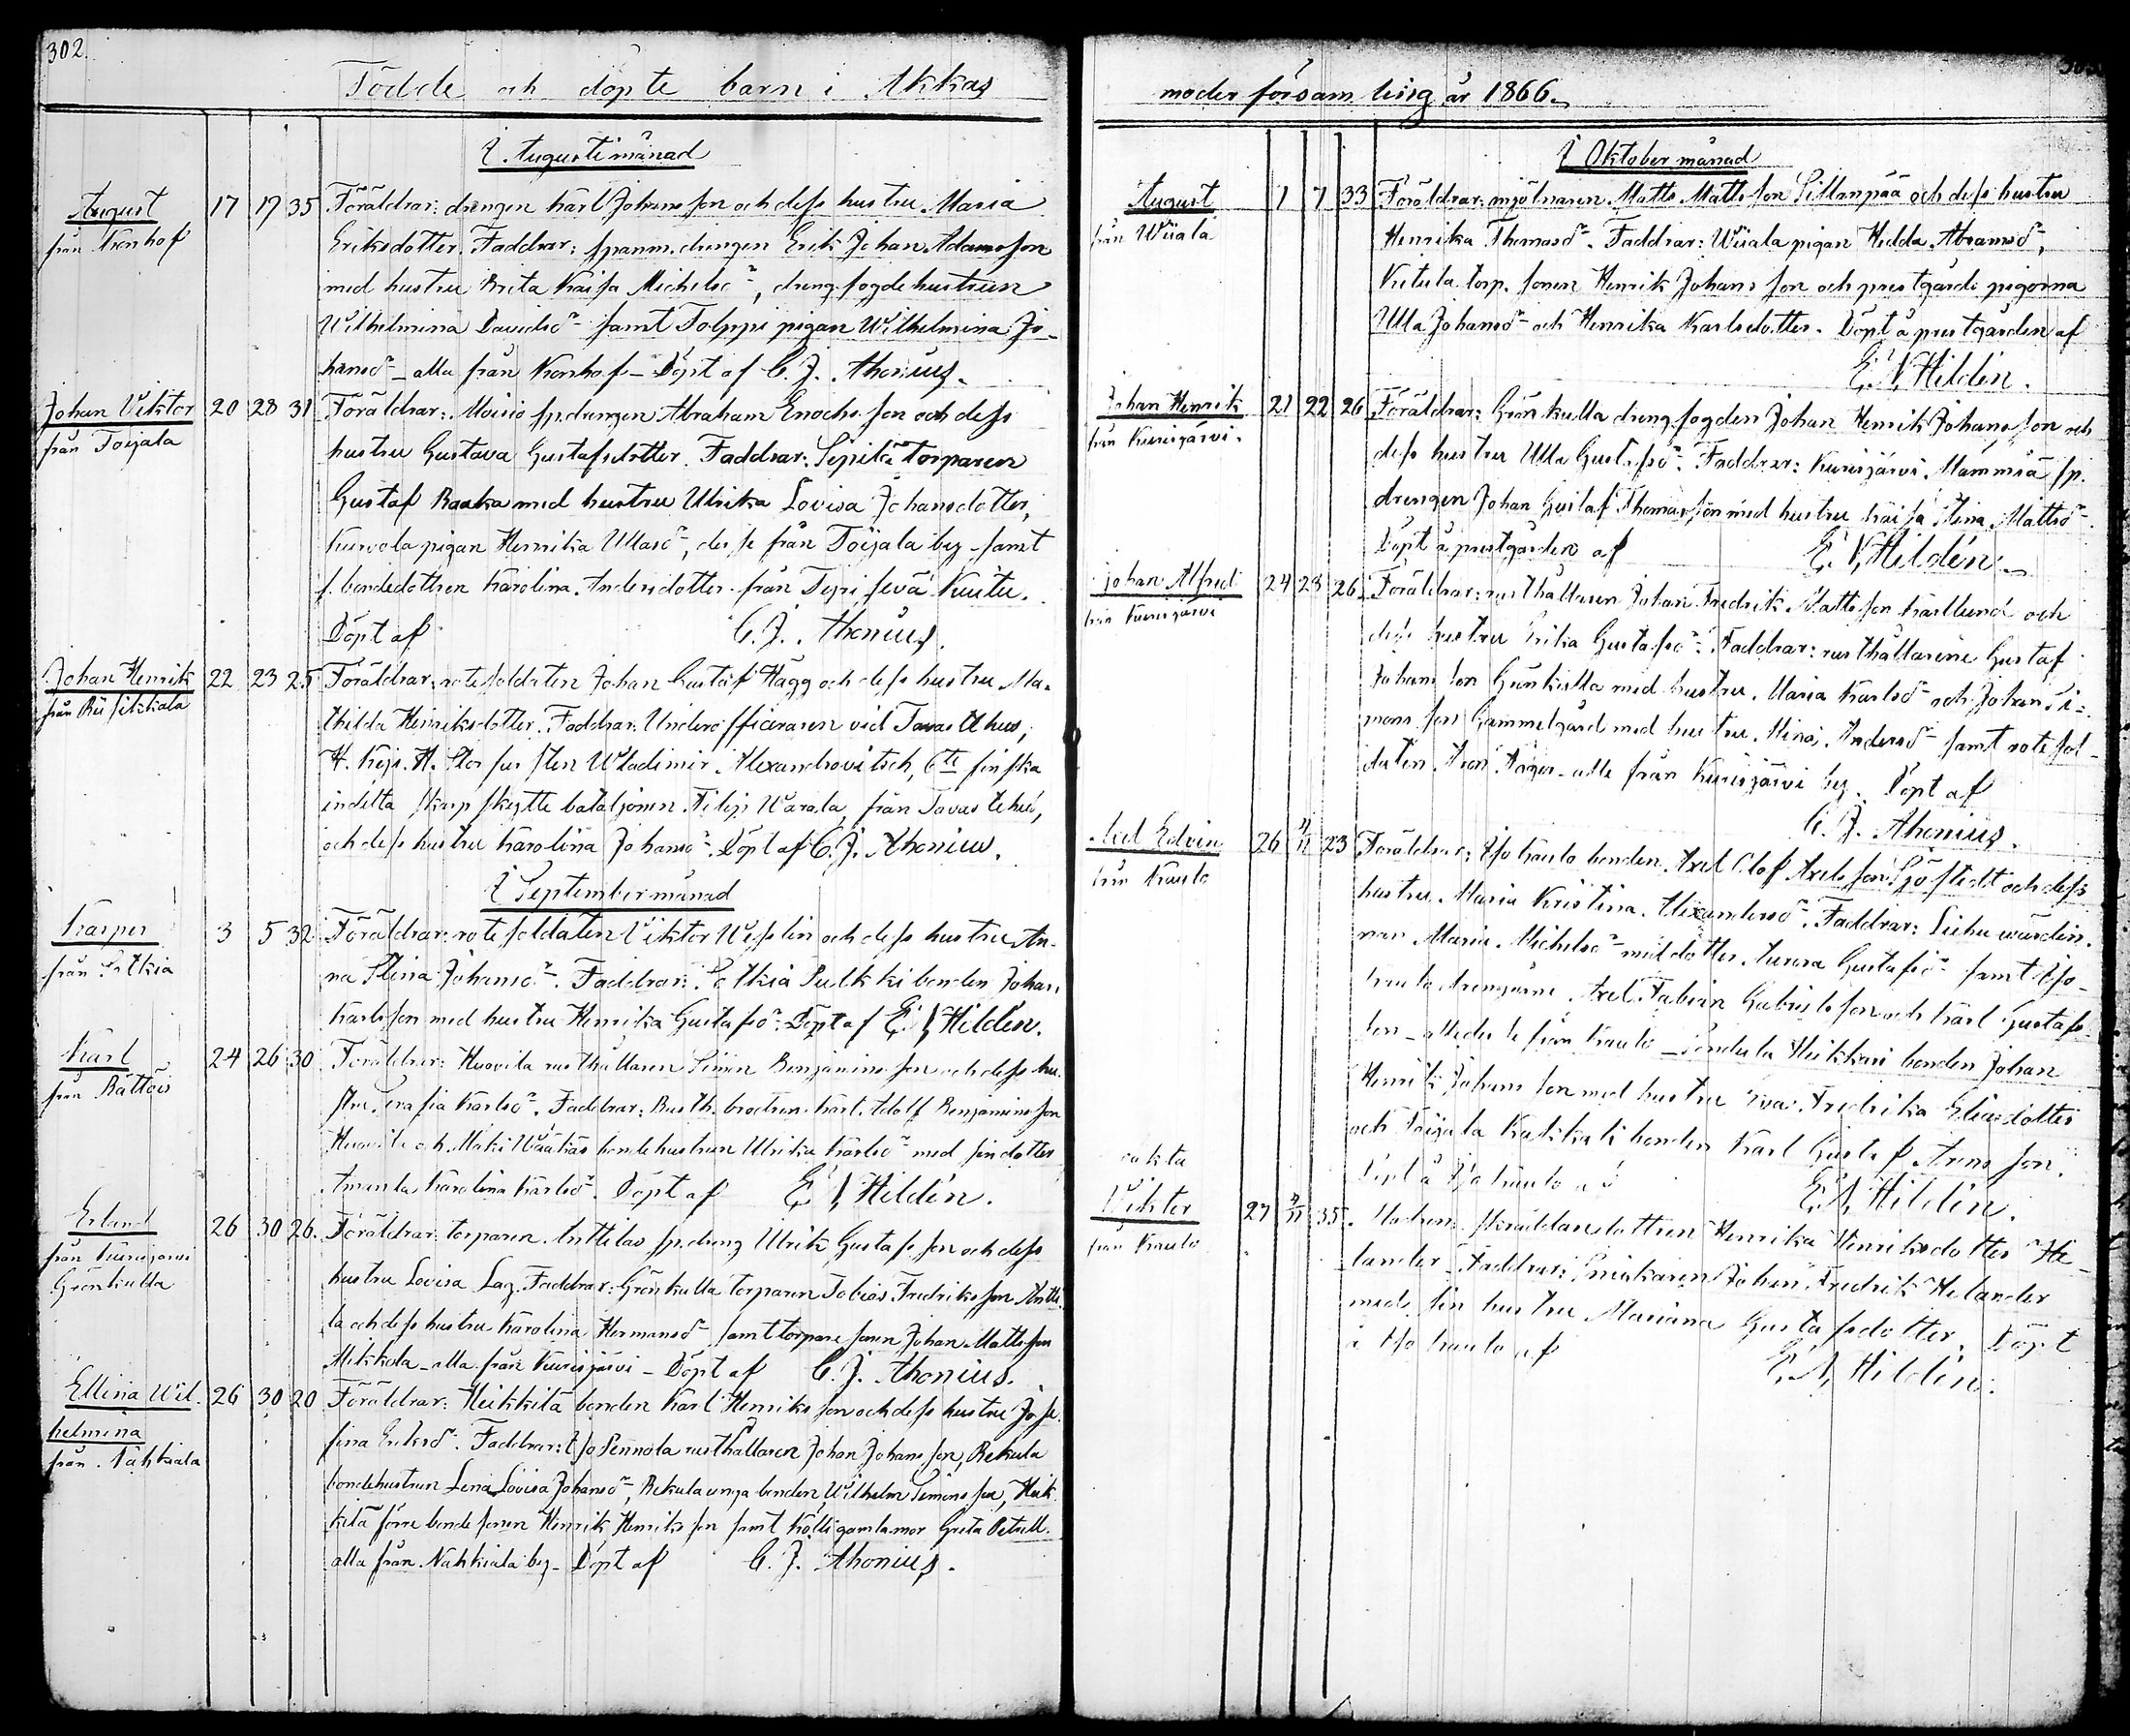 302.
Födde och döpte barn i Akkas
I Augusti månad
August
från Kronhof
17 19 35
Föräldrar: drengen Karl Johans son och dess hustru Maria
Eriksdotter. Faddrar: spanm. drengen Erik Johan Adams son
med hustru Brita Kaisa Michelsdr, drengfogdehustrun
Wilhelmina Davidsdr samt Tolppi pigan Wilhelmina Jo-
hansdr - alla från Kronhof - Döpt af C. J. Ahonius.
Johan Viktor
från Toijala
20 28 31
Föräldrar: Moisio sp.drengen Abraham Enochs son och dess
hustru Gustava Gustafsdotter. Faddrar: Sipilä torparen
Gustaf Raaka med hustru Ulrika Lovisa Johansdotter,
Kurvola pigan Henrika Ullasdr, desse från Toijala by - samt
f. bondedottren Karolina Andersdotter från
Döpt af C. J. Ahonius.
Johan Henrik
från Riisikkala
22 23 25
Föräldrar: rotesoldaten Johan Gustaf Hägg och dess hustru Ma-
thilda Henriksdotter. Faddrar: Underofficeraren vid Tavastehus,
H. Kejs. H. Storfursten Wladimir Alexandrovitsch, 6te finska
indelta skarpskytte bataljonen Filip Warala, från Tavastehus,
och dess hustru Karolina Johansdr. Döpt af C. J. Ahonius.
I September månad
Kasper
från Sotkia
3 5 32
Föräldrar: rotesoldaten Viktor Wesslin och dess hustru An-
na Stina Johansdr. Faddrar: Sotkia Pulkki bonden Johan
Karls son med hustru Henrika Gustafsdr. Döpt af E. V. Hildén.
Karl
från Rättöis
24 26 30
Föräldrar: Huovila rusthållaren Simon Benjamins son och dess hu-
stru Serafia Karlsdr. Faddrar: Rusth. brodren Karl Adolf Benjamins son
Huovila och Mäki Wääkäs bondehustrun Ulrika Karlsdr med sin dotter
Amanda Karolina Karlsdr. Döpt af E. V. Hildén.
Erland
från Kurisjärvi
Grönkulla
26 30 26.
Föräldrar: torparen Anttilas sp.dreng Ulrik Gustafs son och dess
hustru Lovisa Lag. Faddrar: Grönkulla torparen Tobias Fredriks son Antti-
la och dess hustru Karolina Hermansdr samt torpare sonen Johan Matts son
Mikkola - alla från Kurisjärvi - Döpt af C. J. Ahonius.
Ellina Wil-
helmina
från Nahkiala
26 30 20
Föräldrar: Heikkilä bonden Karl Henriks son och dess hustru Jose-
fina Eriksdr. Faddrar: Iso Sennola rusthållaren Johan Johans son, Rekula
bondehustrun Lena Lovisa Johansdr, Rekula unga bonden Wilhelm Simons son, Heik-
kilä förre bonde sonen Henrik Henriks son samt Kölli gamlamor Greta
alla från Nahkiala by - Döpt af C. J. Ahonius.
moder församling år 1866.
I Oktober månad
August
från Wiiala
1 7 33
Föräldrar: mjölnaren Matts Matts son Sillanpää och dess hustru
Henrika Thomasdr. Faddrar: Wiiala pigan Hedda Abramsdr,
Kitula torp. sonen Henrik Johans son och prestgårds pigorna
Ulla Johansdr och Henrika Karlsdotter. Döpt å prestgården af
E. V. Hildén.
Johan Henrik
från Kurisjärvi.
21 22 26
Föräldrar: Grönkulla drengfogden Johan Henrik Johans son och
dess hustru Ulla Gustafsdr. Faddrar: Kurisjärvi Mämmiä sp.
drengen Johan Gustaf Thomas son med hustru Kaisa Stina Mattsdr.
Döpt å prestgården af E. V. Hildén.
Johan Alfred
från Kurisjärvi
24 28 26
Föräldrar: rusthållaren Johan Fredrik Matts son Karlund och
dess hustru Erika Gustafsdr. Faddrar: rusthållarene Gustaf
Johans son Grönkulla med hustru Maria Karlsdr och Johan Si-
mons son Gammelgård med hustru Mina Andersdr samt rotesol-
daten - alla från Kurisjärvi by. Döpt af
C. J. Ahonius.
Axel Edvin
från Kaulo
26 4/11 23
Föräldrar: Iso Kaulo bonden Axel Olof Axels son Sjöstedt och dess
hustru Maria Kristina Alexandersdr. Faddrar: Liehu värdin-
nan Maria Michelsdr med dotter Aurora Gustafsdr samt Iso-
kaulo drengarne Axel Fabian Gabriels son och Karl Gustafs
son - alla desse från Kaulo - Heikkari bonden Johan
Henrik Johans son med hustru Eva Fredrika Eliasdotter
och Toijala bonden Karl Gustaf Arons son.
Döpt å Iso Kaulo af E. V. Hildén.
oäkta
Viktor
från Kaulo
27 4/11 35.
Modren: skräddaredottren Henrika Henriksdotter He-
lander - Faddrar: Johan Fredrik Helander
med sin hustru Mariana Gustafsdotter. Döpt
å Iso Kaulo af E. V. Hildén.